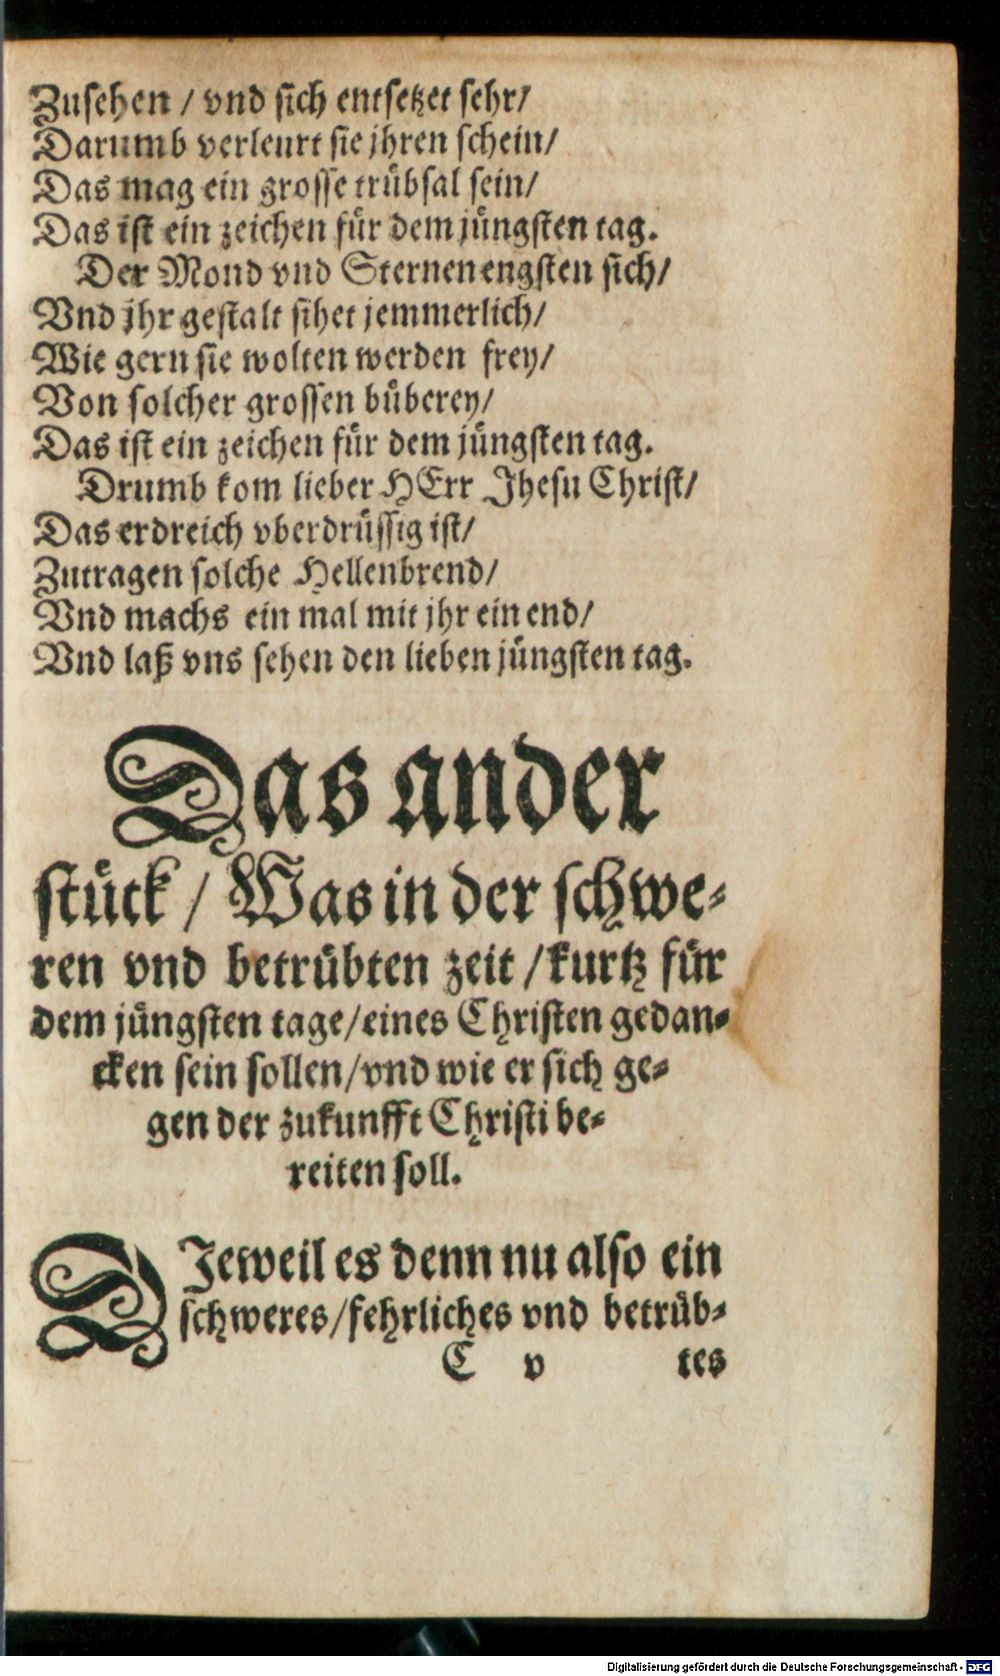 Zusehen / vnd sich entsetzet sehr/
Darumb verleurt sie jhren schein/
Das mag ein grosse trübsal sein/
Das ist ein zeichen für dem jüngsten tag.
Der Mond vnd Sternen engsten sich/
Vnd jhr gestalt sihet jemmerlich/
Wie gern sie wolten werden frey/
Von solcher grossen büberey/
Das ist ein zeichen für dem jüngsten tag.
Drumb kom lieber HErr Jhesu Christ/
Das erdreich vberdrüssig ist/
Zutragen solche Hellenbrend/
Vnd machs ein mal mit jhr ein end/
Vnd laß vns sehen den lieben jüngsten tag.
Das ander
stück / Was in der schwe-
ren vnd betrübten zeit / kurtz für
dem jüngsten tage/eines Christen gedan-
cken sein sollen/vnd wie er sich ge-
gen der zukunfft Christi be-
reiten soll.
DJeweil es denn nu also ein
schweres/fehrliches vnd betrüb-
C v tes
Digitalisierung gefördert durch die Deutsche Forschungsgemeinschaft - DFG